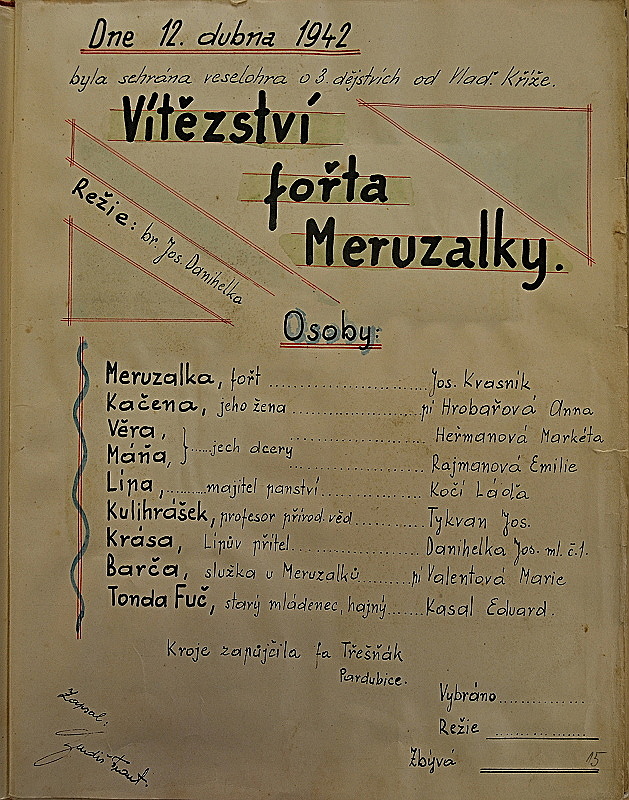 Dne 12. dubna 1942
byla sehrána veselohra o 3. dějstvích od Vlad. Kříže.
Vítězství
fořta
Meruzalky.
Režie: br. Jos. Danihelka
Osoby:
Meruzalka, fořt ........................ Jos. Kvasnik
Kačena, jeho žena .................... pí Hrobařová Anna
Věra, ........................ Heřmanová Markéta
} ......jech dcery
Máňa, ........................ Rajmanová Emilie
Lípa, ..........majitel panství .................. Kočí Láďa
Kulihrášek, profesor přírod. věd ............ Tykvan Jos.
Krása, Lípův přítel ........................ Danihelka Jos. ml. č.1.
Barča, služka u Meruzalků .......... pí Valentová Marie
Tonda Fuč, starý mládenec, hajný ....... Kasal Eduard.
Kroje zapůjčila fa Třešňák
Pardubice.
Vybráno ................
Režie ................
Zbývá 15
Zapsal: